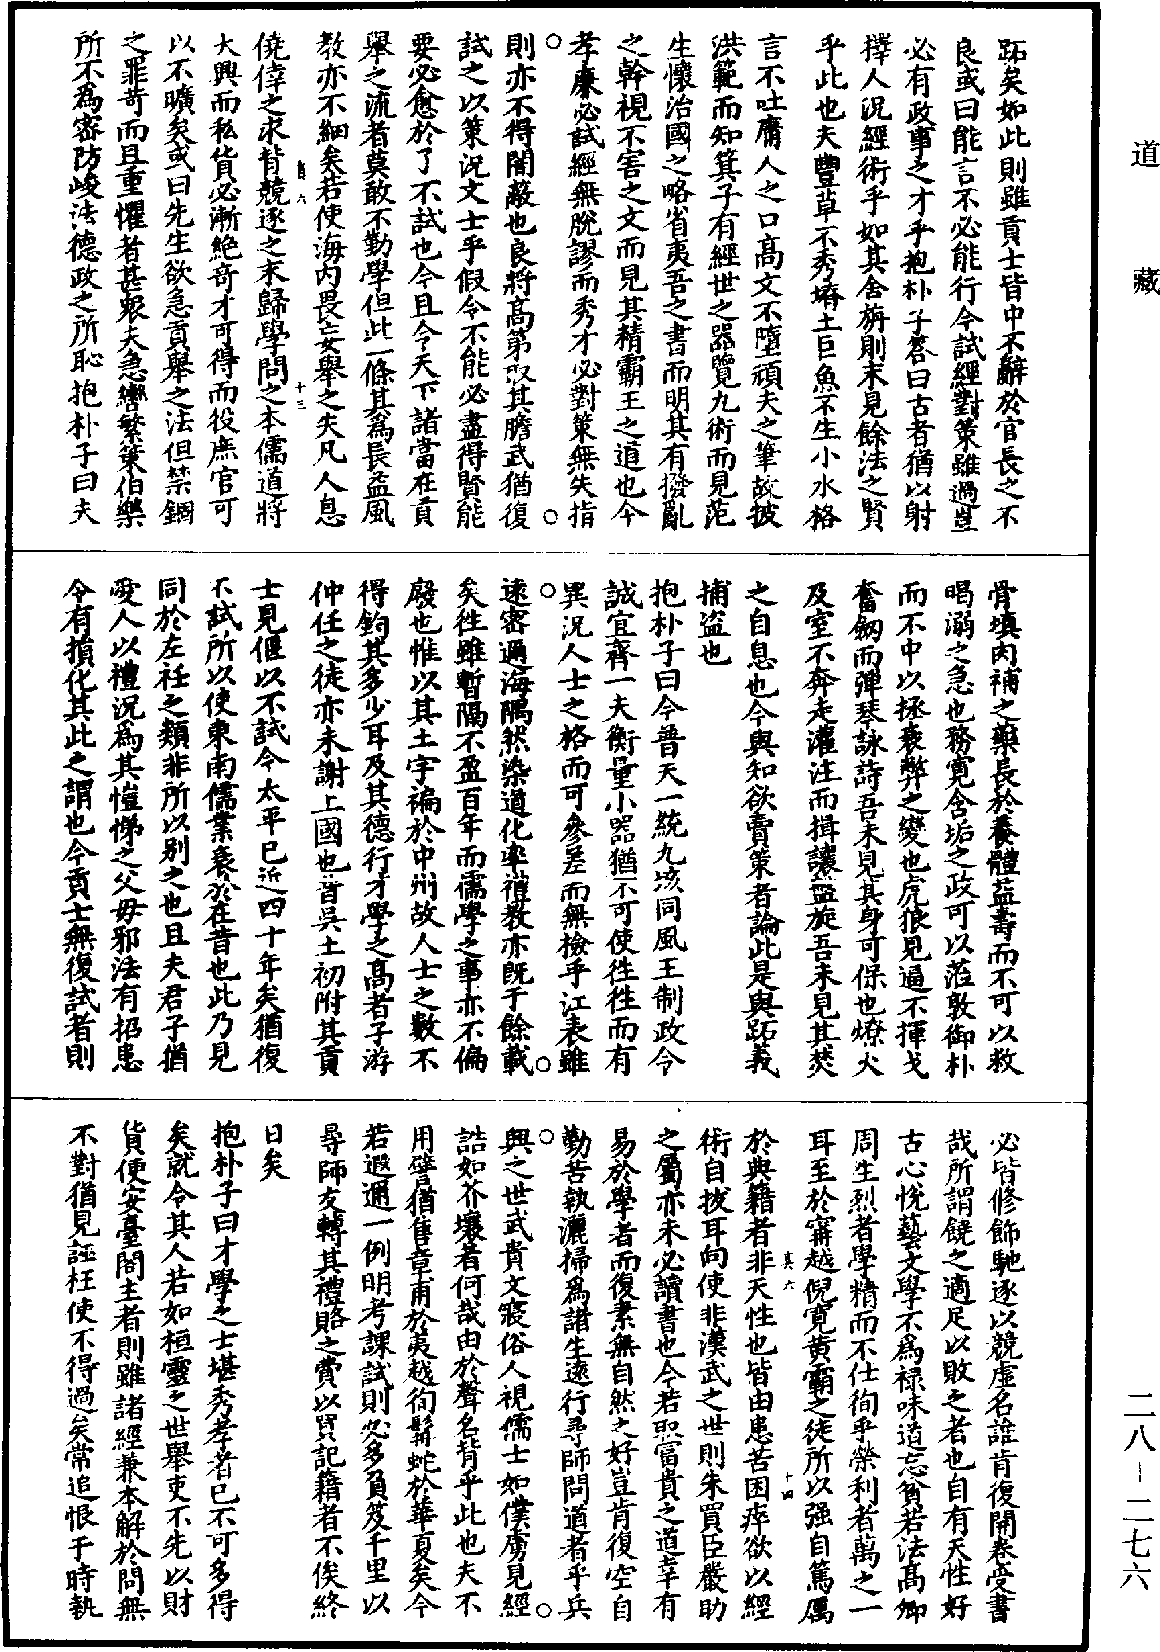 道藏
跖矣如此則雖貢士皆中不辭於官長之不
良或曰能言不必能行今試經對策雖過豈
必有政事之才乎抱朴子答曰古者猶以射
擇人況經術乎如其舍旃則未見餘法之賢
乎此也夫豐草不秀塉土巨魚不生小水格
言不吐庸人之口高文不墮頑夫之筆故披
洪範而知箕子有經世之器覽九術而見范
生懷治國之略省夷吾之書而明其有撥亂
之幹視不害之文而見其精霸王之道也今
孝廉必試經無脫謬而秀才必對策無失指
則亦不得闇蔽也良將高第取其膽武猶復
試之以策況文士乎假令不能必盡得賢能
要必愈於了不試也今且令天下諸當在貢
舉之流者莫敢不勤學但此一條其爲長益風
教亦不細矣若使海內畏妄舉之失凡人息
真六 十三
僥倖之求背競逐之末歸學問之本儒道將
大興而私貨必漸絕奇才可得而役庶官可
以不曠矣或曰先生欲急貢舉之法但禁錮
之罪苛而且重懼者甚衆夫急轡繁策伯樂
所不爲密防峻法德政之所恥抱朴子曰夫
骨填肉補之藥長於養體益壽而不可以救
暍溺之急也務寬含垢之政可以蒞敦御朴
而不中以拯衰弊之變也虎狼見逼不揮戈
奮劒而彈琴詠詩吾未見其身可保也燎火
及室不奔走灌注而揖讓盤旋吾未見其焚
之自息也今與知欲賣策者論此是與跖義
捕盜也
抱朴子曰今普天一統九垓同風王制政令
誠宜齊一夫衡量小器猶不可使往往而有
異況人士之格而可參差而無檢乎江表雖
遠密邇海隅然染道化率禮教亦旣千餘載
矣往雖暫隔不盈百年而儒學之事亦不偏
廢也惟以其土宇褊於中州故人士之數不
得鈞其多少耳及其德行才學之高者子游
仲任之徒亦未謝上國也昔吳土初附其貢
士見偃以不試今太平已近四十年矣猶復
不試所以使東南儒業衰於在昔也此乃見
同於左衽之類非所以别之也且夫君子猶
愛人以禮況爲其愷悌之父母邪法有招患
令有損化其此之謂也今貢士無復試者則
必皆修飾馳逐以競虛名誰肯復開卷受書
哉所謂饒之適足以敗之者也自有天性好
古心悅藝文學不爲祿味道忘貧若法高卿
周生烈者學精而不仕徇乎榮利者萬之一
耳至於甯越倪寬黃霸之徒所以强自篤厲
真六 十四
於典籍者非天性也皆由患苦困瘁欲以經
術自拔耳向使非漢武之世則朱買臣嚴助
之屬亦未必讀書也今若取富貴之道幸有
易於學者而復素無自然之好豈肯復空自
勤苦執灑掃爲諸生遠行尋師問道者乎兵
興之世武貴文寢俗人視儒士如僕虜見經
誥如芥壤者何哉由於聲名背乎此也夫不
用譬猶售章甫於夷越徇髯蛇於華夏矣今
若遐邇一例明考課試則必多負笈千里以
尋師友轉其禮賂之費以買記籍者不俟終
日矣
抱朴子曰才學之士堪秀孝者已不可多得
矣就令其人若如桓靈之世舉吏不先以財
貨便安臺閣主者則雖諸經兼本解於問無
不對猶見誣枉使不得過矣常追恨于時執
二八－二七六